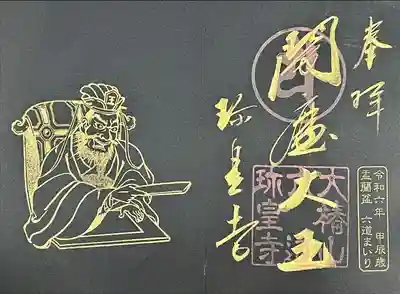 奉拝
閻魔大王
珍皇寺
大椿山
六道
珍皇寺
令和六年 甲辰歳
盂蘭盆 六道まいり